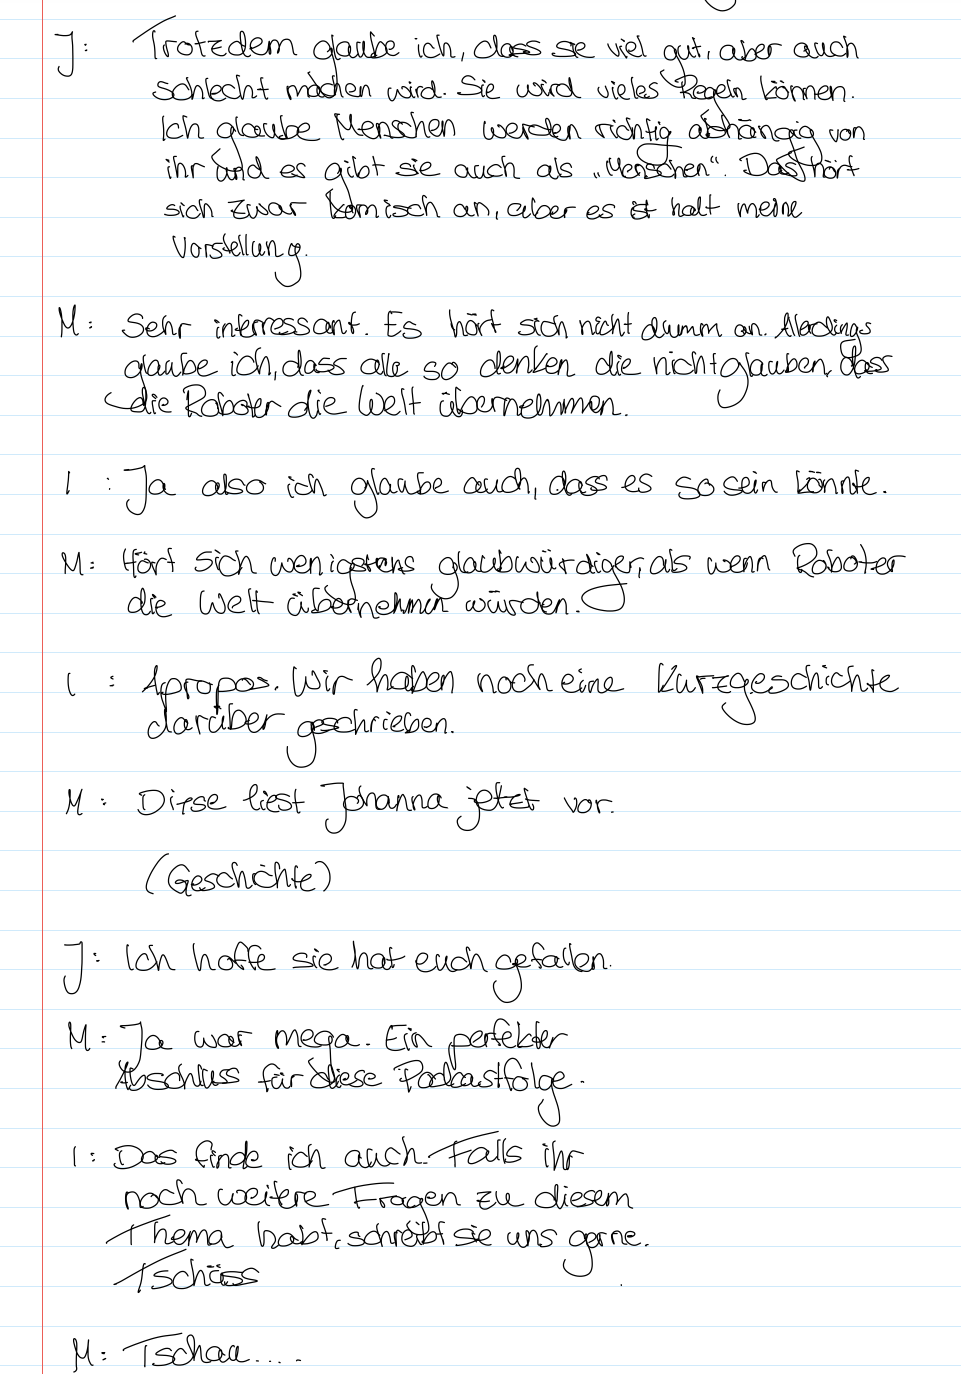 J: Trotzdem glaube ich, dass se viel gut, aber auch
schlecht machen wird. Sie wird vieles Regeln können.
Ich glaube Menschen werden richtig abhängig von
ihr und es gibt sie auch als „Menschen“. Das hört
sich zwar komisch an, aber es ist halt meine
Vorstellung.
M: Sehr interressant. Es hört sich nicht dumm an. Allerdings
glaube ich, dass alle so denken die nicht glauben, dass
die Roboter die Welt übernehmen.
I: Ja also ich glaube auch, dass es so sein könnte.
M: Hört sich wenigstens glaubwürdiger, als wenn Roboter
die Welt übernehmen würden.
I: Apropos. Wir haben noch eine Kurzgeschichte
darüber geschrieben.
M: Diese liest Johanna jetzt vor.
(Geschichte)
J: Ich hoffe sie hat euch gefallen.
M: Ja war mega. Ein perfekter
Abschluss für diese Podcastfolge.
I: Das finde ich auch. Falls ihr
noch weitere Fragen zu diesem
Thema habt, schreibt sie uns gerne.
Tschüss
M: Tschau....